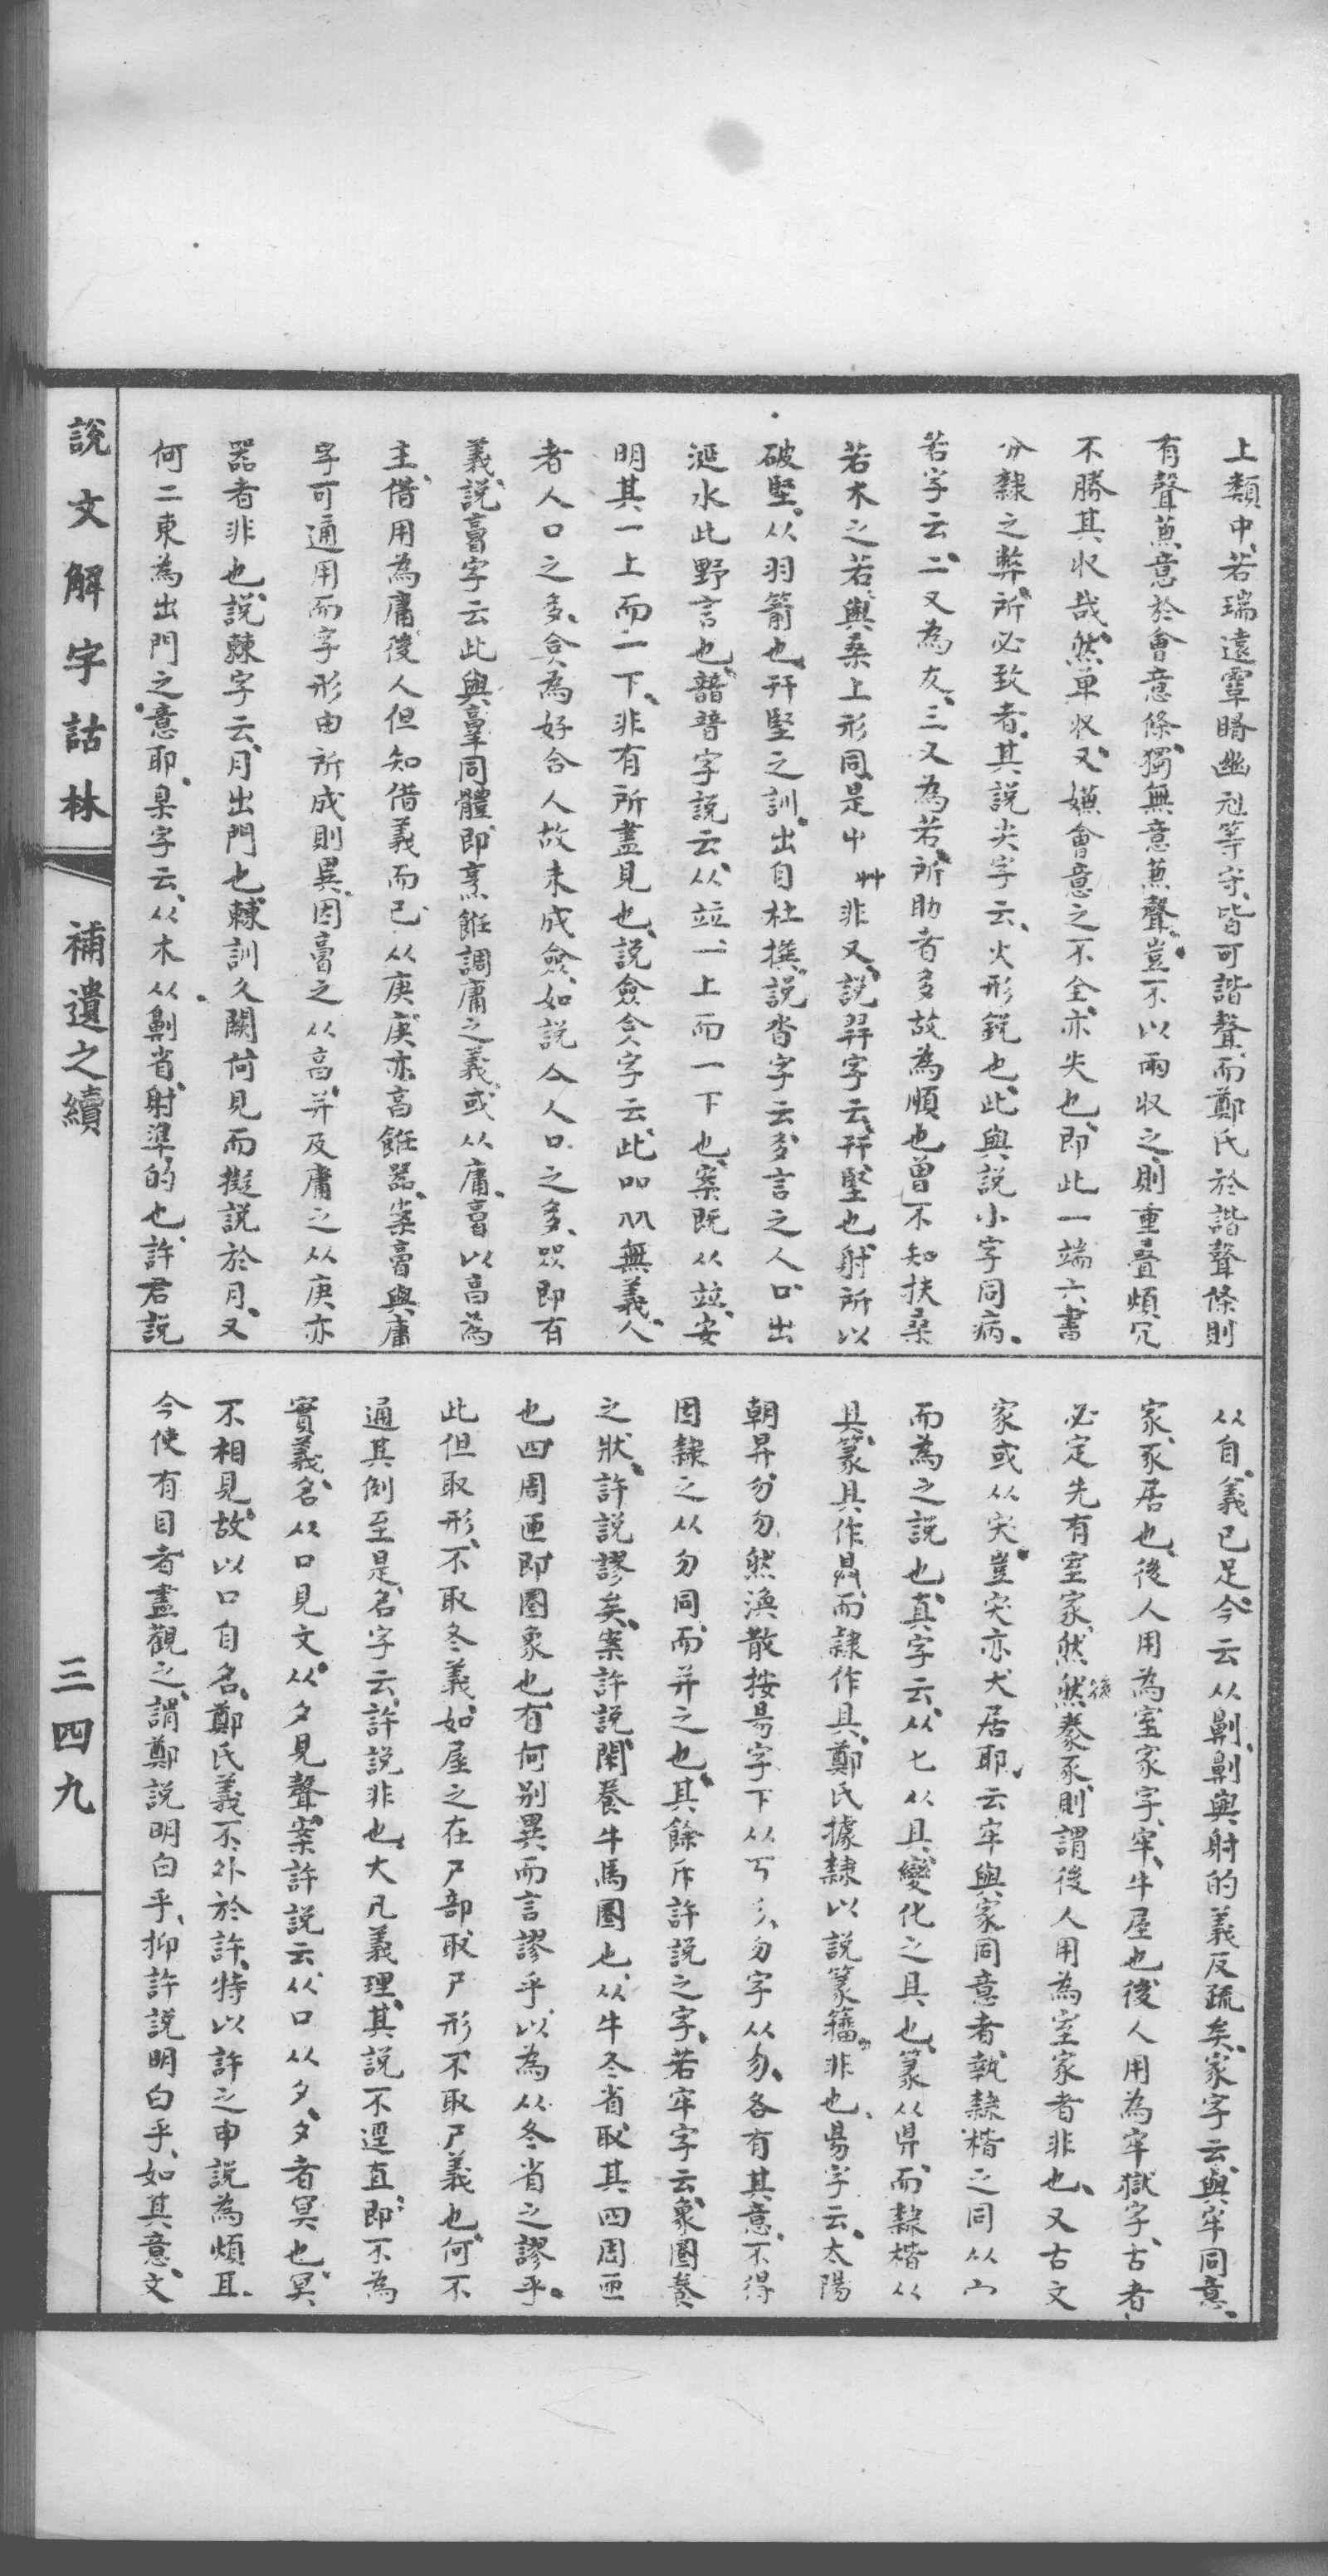 上類中、若瑞遠覃暗幽尟等字、皆可諧聲、而鄭氏於諧聲條則
有聲蒹意於會意條、獨無意蒹聲、豈不以兩収之、則重疊煩冗
不勝其収哉、然单収又、嫌會意之不全、亦失也、即此一端六書
分隸之弊、所必致者、其說尖字云、火形銳也、此與說小字同病、
若字云、二又為友、三又為若、所助者多故為順也曾不知扶桑
若木之若、與桑上形同、是屮艸非又、說羿字云、幵堅也、射所以
破堅、从羽箭也、幵堅之訓、出自杜撰、說沓字云、多言之人口出
涎水此野言也、暜字說云、从竝、一上而一下也、案既从竝、安
明其一上而一下、非有所盡見也、說僉字云、此吅从無義、人
者人口之多、為好合人故未成僉、如說亼人口之多、即有
義、說字云此與同體、即烹飪調庸之義、或从庸、以亯為
主、借用為庸、後人但知借義而已、从庚、庚亦亯飪器、案與庸
字可通用而字形由所成則異、因之从亯、并及庸之从庚亦
器者非也、說棘字云、月出門也、棘訓久闕何見而擬說於月、又
何二東為出門之意耶、臬字云、从木、从劓省、射準的也、許君說
从自、義已足、今云从劓、劓與射的義反疏矣、家字云、與牢同意、
家、豕居也、後人用為室家字、牢、牛屋也、後人用為牢獄字、古者
必定先有室家、然然後豢豕、則謂後人用為室家者非也、又古文
家或从穾、豈穾亦犬居耶、云牢與家同意者執隸楷之同从宀
而為之說也、真字云、从匕从具、變化之具也、篆从県、而隸楷从
具、篆具作、而隸作具、鄭氏據隸以說篆籀、非也、昜字云、太陽
朝昇、勿勿然渙散按昜字下从丂彡、勿字从勿、各有其意、不得
因隸之从勿同、而并之也、其餘斥許說之字、若牢字云、象圈養
之狀、許說謬矣、案許說、閑養牛馬圈也、从牛冬省、取其四周匝
也四周匝即圈象也、有何别異而言謬乎、以為从冬省之謬乎、
此但取形、不取冬義、如屋之在尸部取尸形不取尸義也、何不
通其例至是、名字云、許說非也、大凡義理、其說不逕直、即不為
實義、名从口見文、从夕見聲、案許說云、从口从夕、夕者冥也、冥
不相見、故以口自名、鄭氏義不外於許、特以許之申說為煩耳、
今使有目者盡觀之、謂鄭說明白乎、抑許說明白乎、如其意、文
說文解字詁林
補遺之續
三四九